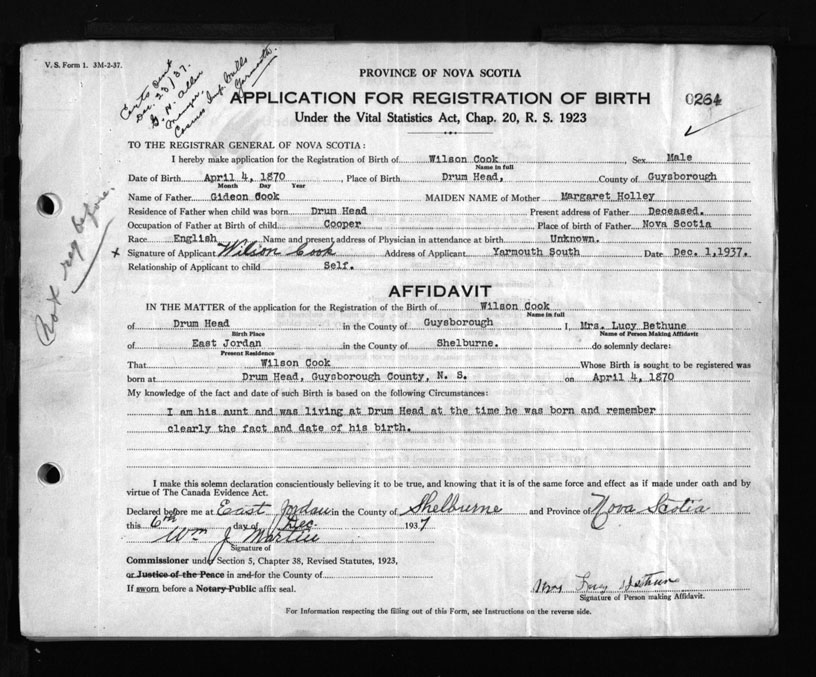 V. S. Form 1. 3M-2-37.
Certs Sent
Dec. 23/37.
G. H. Allen
Manager,
Cosmos Imp. Mills
Yarmouth
PROVINCE OF NOVA SCOTIA
APPLICATION FOR REGISTRATION OF BIRTH 0264
Under the Vital Statistics Act, Chap. 20, R. S. 1923
TO THE REGISTRAR GENERAL OF NOVA SCOTIA:
I hereby make application for the Registration of Birth of Wilson Cook, Sex Male
Name in full
Date of Birth April 4, 1870, Place of Birth Drum Head, County of Guysborough
Month Day Year
Name of Father Gideon Cook MAIDEN NAME of Mother Margaret Holley
Residence of Father when child was born Drum Head Present address of Father Deceased.
Occupation of Father at Birth of child Cooper Place of birth of Father Nova Scotia
Race English Name and present address of Physician in attendance at birth Unknown.
x Signature of Applicant Wilson Cook Address of Applicant Yarmouth South Date Dec. 1, 1937.
Relationship of Applicant to child Self.
Not reg before.
AFFIDAVIT
IN THE MATTER of the application for the Registration of the Birth of Wilson Cook
Name in full
of Drum Head in the County of Guysborough I, Mrs. Lucy Bethune
Birth Place Name of Person Making Affidavit
of East Jordan in the County of Shelburne. do solemnly declare:
Present Residence
That Wilson Cook Whose Birth is sought to be registered was
born at Drum Head, Guysborough County, N. S. on April 4, 1870
My knowledge of the fact and date of such Birth is based on the following Circumstances:
I am his aunt and was living at Drum Head at the time he was born and remember
clearly the fact and date of his birth.
I make this solemn declaration conscientiously believing it to be true, and knowing that it is of the same force and effect as if made under oath and by
virtue of The Canada Evidence Act.
Declared before me at East Jordan in the County of Shelburne and Province of Nova Scotia
this 6th day of Dec 1937
Wm J Martin
Signature of
Commissioner under Section 5, Chapter 38, Revised Statutes, 1923,
or Justice of the Peace in and for the County of
If sworn before a Notary Public affix seal.
Mrs Lucy Bethune
Signature of Person making Affidavit.
For Information respecting the filling out of this Form, see Instructions on the reverse side.